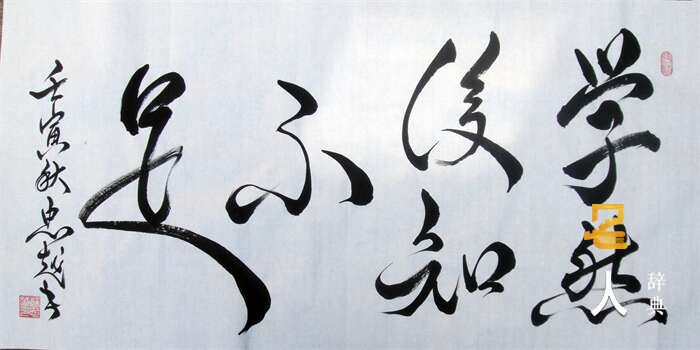 学然
後知
不
足
壬寅秋忠越书
名人
辞典